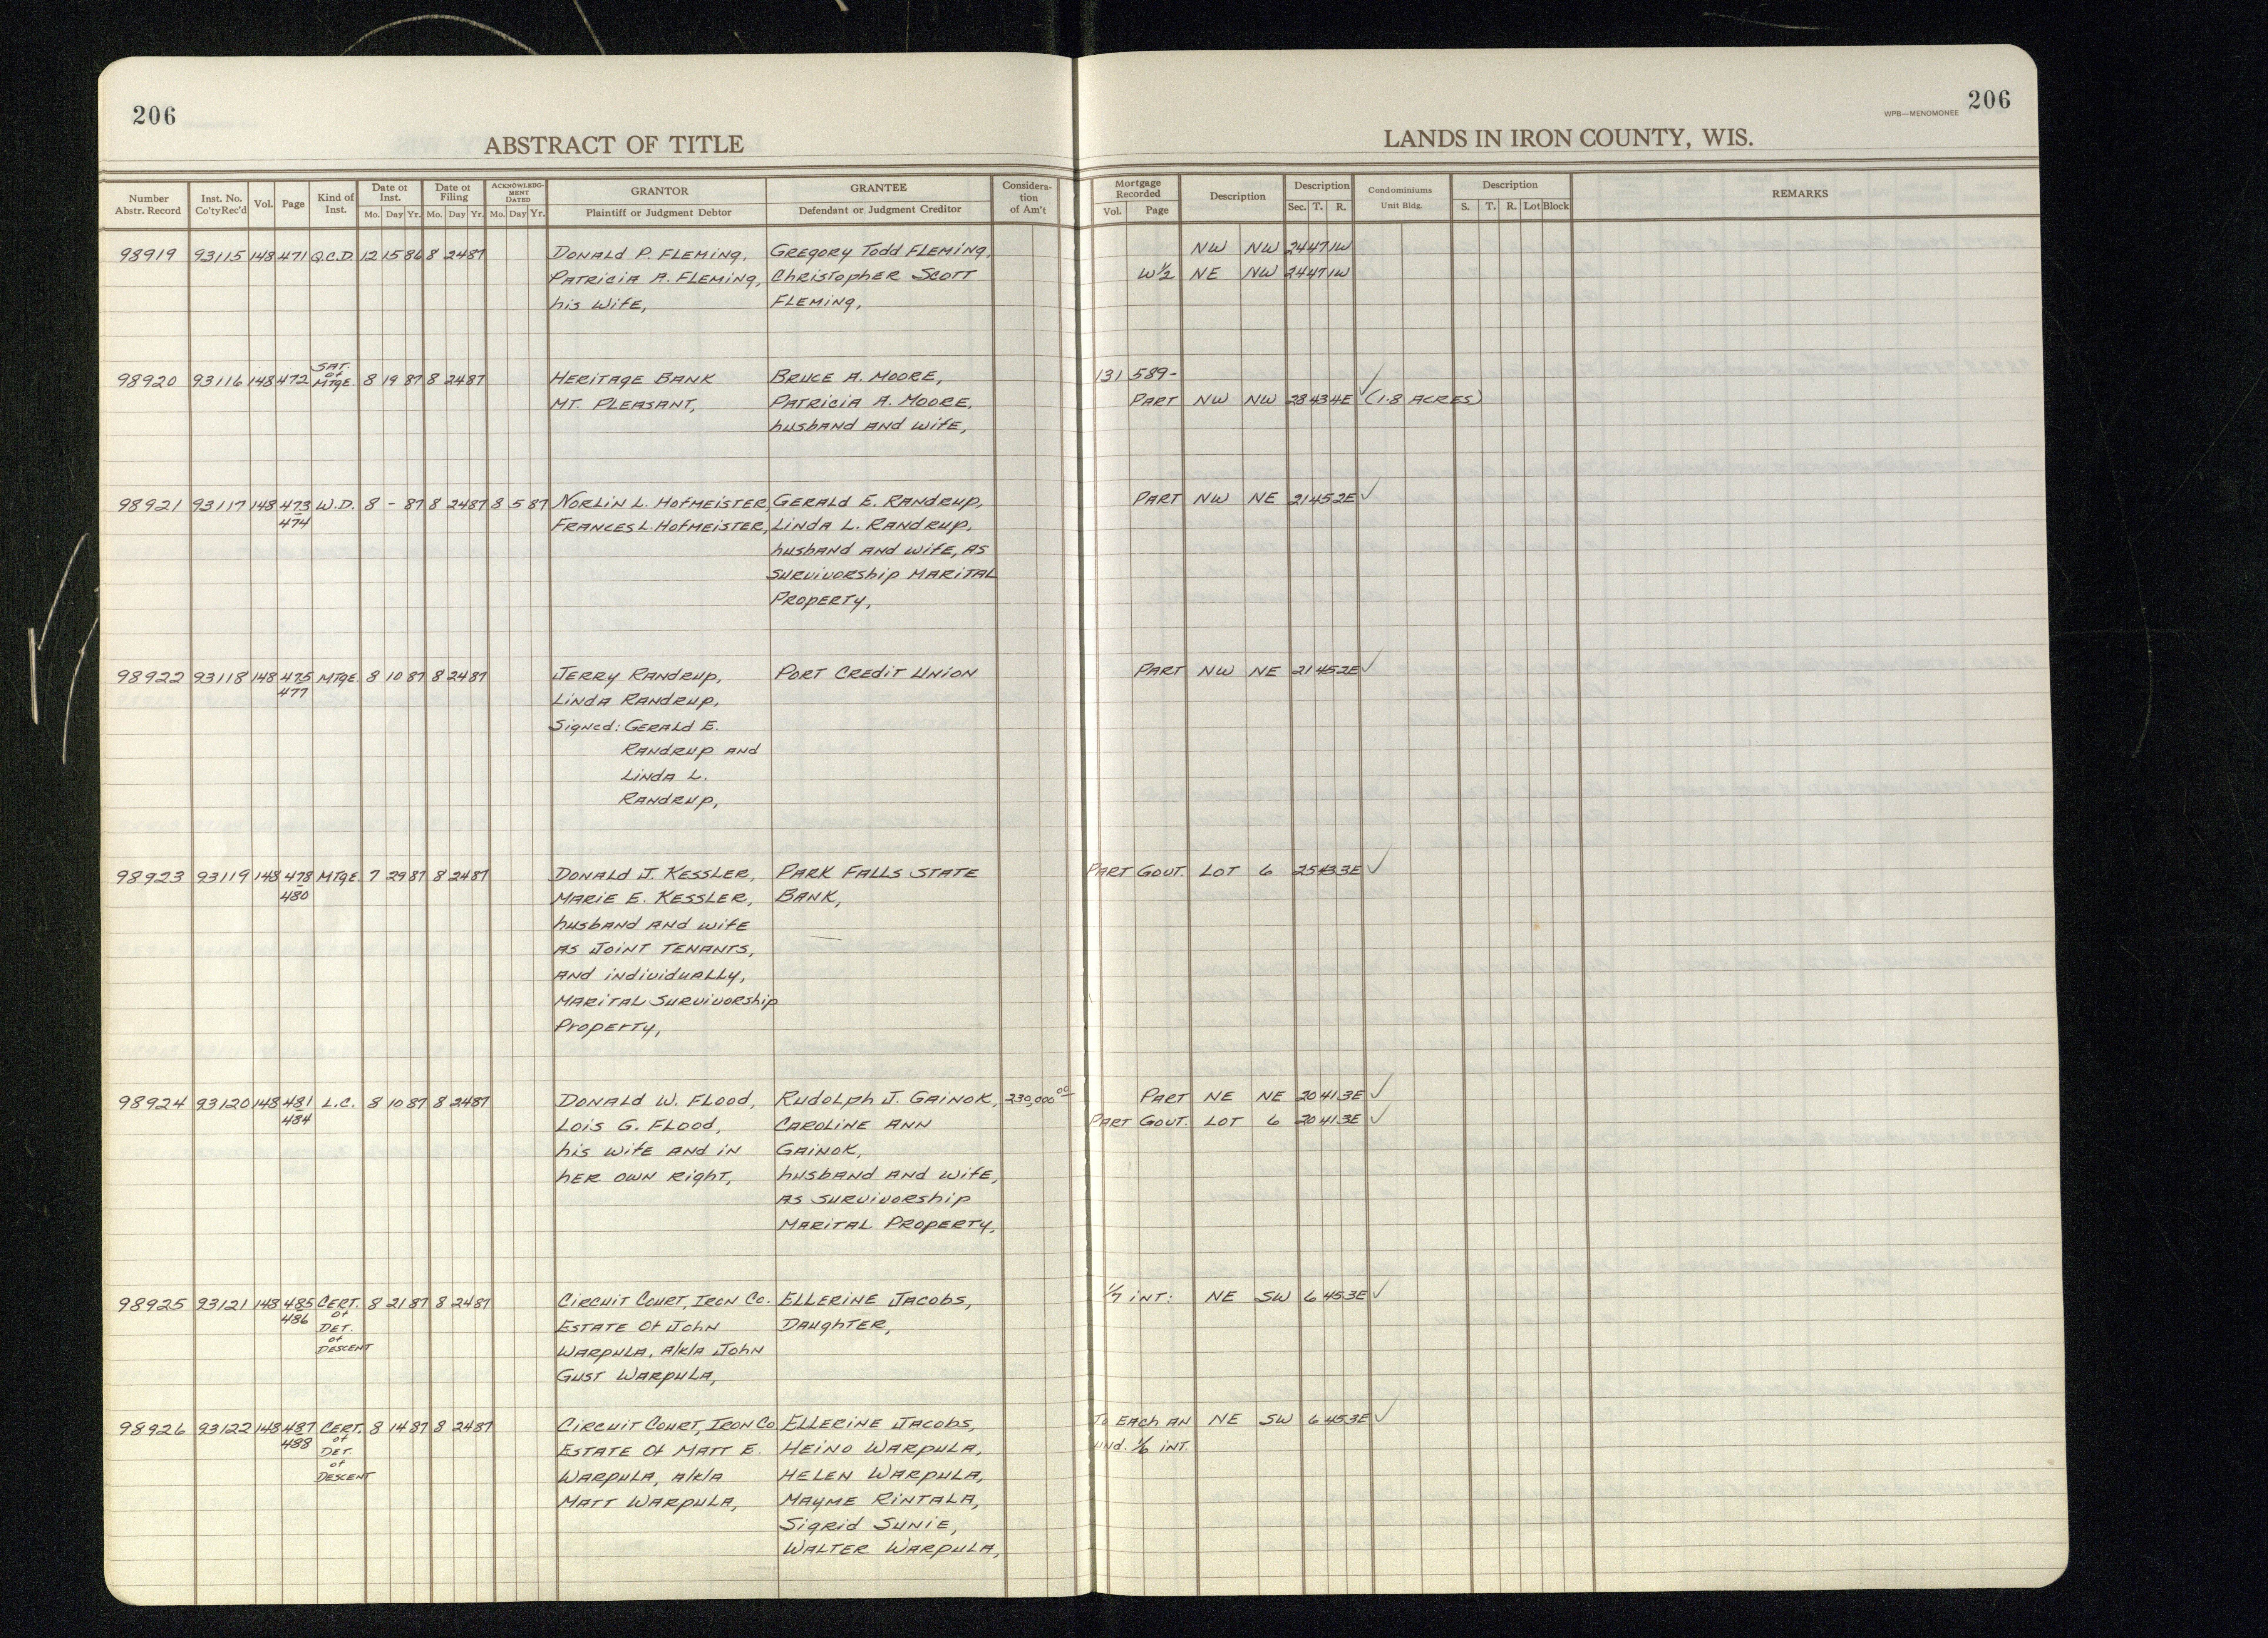 206
206
WPB—MENOMONEE
ABSTRACT OF TITLE
LANDS IN IRON COUNTY, WIS.
Number Abstr. Record
Inst. No. Co'ty Rec'd
Vol.
Page
Kind of Inst.
Date of Inst. Mo. Day Yr.
Date of Filing Mo. Day Yr.
ACKNOWLEDG-MENT DATED Mo. Day Yr.
GRANTOR Plaintiff or Judgment Debtor
GRANTEE Defendant or Judgment Creditor
Considera-tion of Am't
Mortgage Recorded Vol. Page
Description
Description Sec. T. R.
Condominiums Unit Bldg.
Description S. T. R. Lot Block
REMARKS
98919 93115 148 471 Q.C.D. 12 15 86 8 24 87 Donald P. Fleming, Gregory Todd Fleming, NW NW 24 47 1W
Patricia A. Fleming, Christopher Scott W½ NE NW 24 47 1W
his wife, Fleming,
SAT.
of
98920 93116 148 472 MTGE. 8 19 87 8 24 87 Heritage Bank Bruce A. Moore, 131 589-
Mt. Pleasant, Patricia A. Moore, PART NW NW 28 43 4E ✓ (1.8 ACRES)
husband and wife,
98921 93117 148 473 W.D. 8 - 87 8 24 87 8 5 87 Norlin L. Hofmeister, Gerald E. Randrup, PART NW NE 21 45 2E ✓
474 Frances L. Hofmeister, Linda L. Randrup,
husband and wife, as
survivorship marital
property,
98922 93118 148 475 MTGE. 8 10 87 8 24 87 Jerry Randrup, Port Credit Union PART NW NE 21 45 2E ✓
477 Linda Randrup,
Signed: Gerald E.
Randrup and
Linda L.
Randrup,
98923 93119 148 478 MTGE. 7 29 87 8 24 87 Donald J. Kessler, Park Falls State PART GOVT. LOT 6 25 43 3E ✓
480 Marie E. Kessler, Bank,
husband and wife
as joint tenants,
and individually,
marital survivorship
property,
98924 93120 148 481 L.C. 8 10 87 8 24 87 Donald W. Flood, Rudolph J. Gainok, 230,000 00 PART NE NE 20 41 3E ✓
484 Lois G. Flood, Caroline Ann PART GOVT. LOT 6 20 41 3E ✓
his wife and in Gainok,
her own right, husband and wife,
as survivorship
marital property,
98925 93121 148 485 CERT. 8 21 87 8 24 87 Circuit Court, Iron Co. Ellerine Jacobs, 1/7 INT: NE SW 6 45 3E ✓
486 of Estate of John Daughter,
DET.
of Warpula, a/k/a John
DESCENT
Gust Warpula,
98926 93122 148 487 CERT. 8 14 87 8 24 87 Circuit Court, Iron Co Ellerine Jacobs, To Each an NE SW 6 45 3E ✓
488 of Estate of Matt E. Heino Warpula, und. 1/6 INT.
DET.
of Warpula, a/k/a Helen Warpula,
DESCENT
Matt Warpula, Mayme Rintala,
Sigrid Sunie,
Walter Warpula,